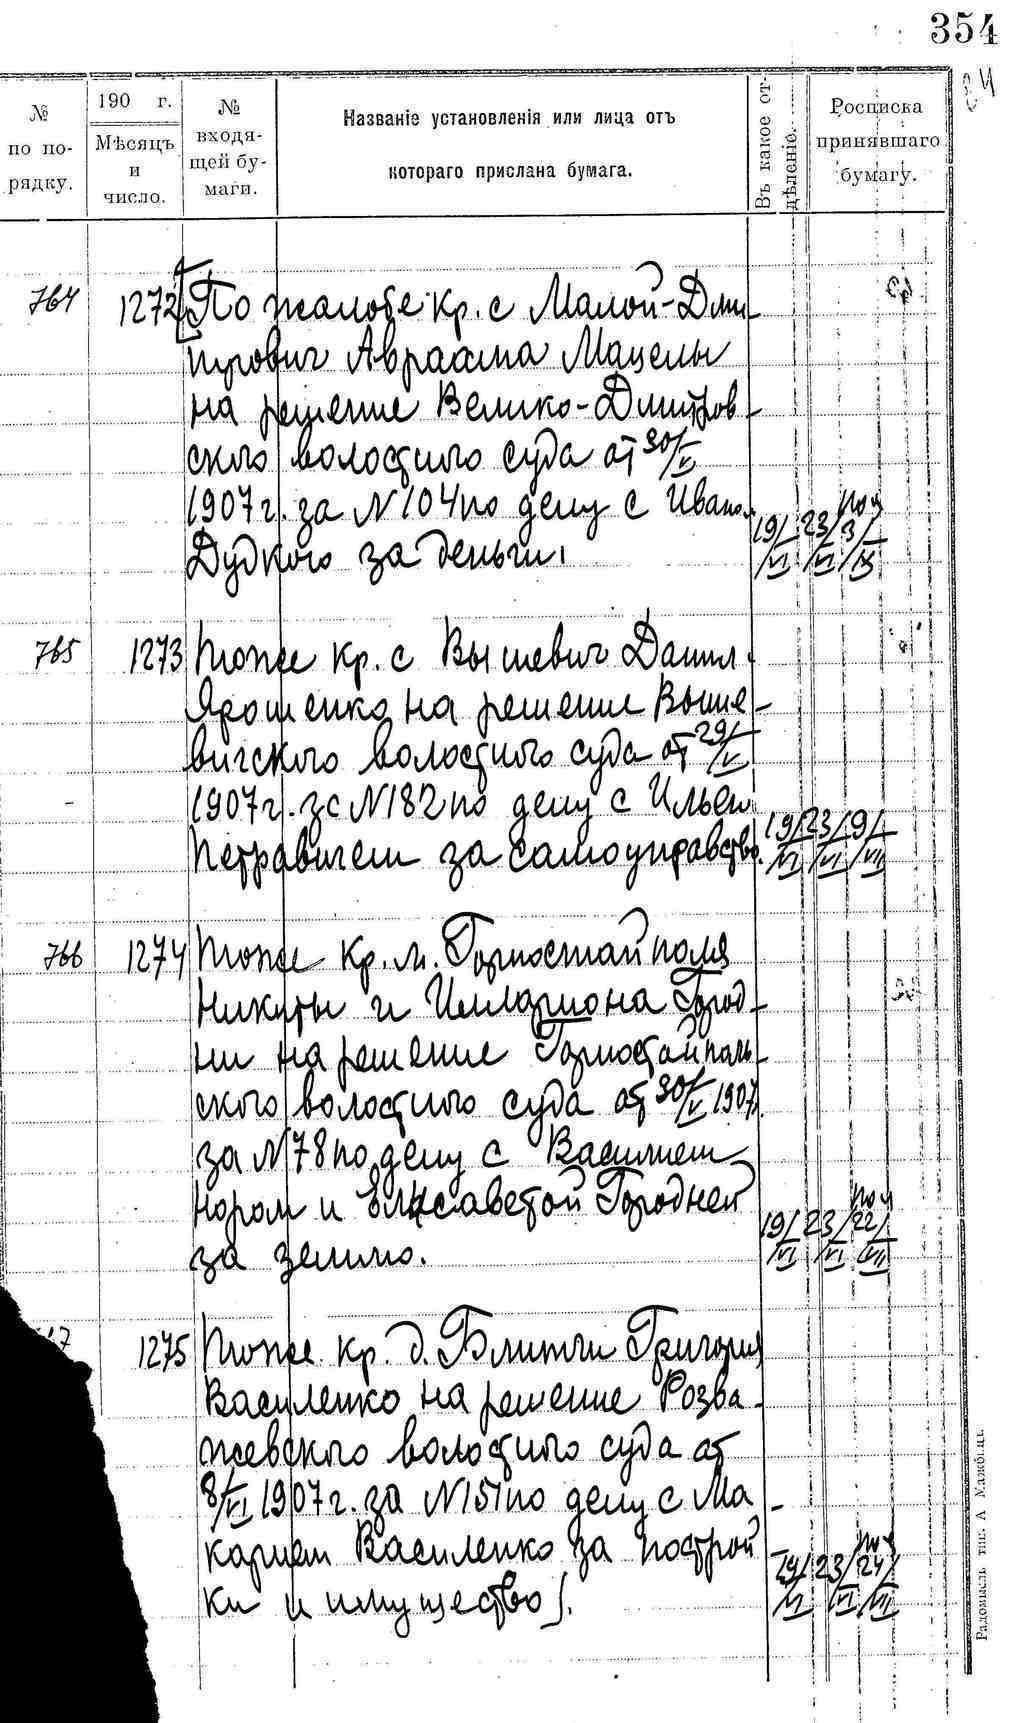 354
№ по по-рядку.
190 г. Мѣсяцъ и число.
№ входя-щей бу-маги.
Названіе установленія или лица отъ котораго прислана бумага.
Въ какое от-дѣленіе.
Росписка принявшаго бумагу.
764 1272 По жалобе кр. с Малой-Дми-
трович Авраама Мацелы
на решение Велико-Дмитров-
ского волостного суда от 30/V
1907 г. за N 104 по делу с Иваном
Дудкого за деньги. 19/VI 23/VI 3/IX
765 1273 тоже кр. с Вышевич Данил.
Ярошенко на решение Выше-
вичского волостного суда от 29/V
1907 г. за N 182 по делу с Ильем
Петравичем за самоуправство. 19/VI 23/VI 9/VII
766 1274 тоже кр. м. Горностайполя
Никиты и Иллариона Город-
ни на решение Горностайполь-
ского волостного суда от 30/V 1907
за N 78 по делу с Василием
Нором и Елисаветой Городней
за землю. 19/VI 23/VI 22/VII
7 1275 тоже кр. д. Блитчи Григория
Василенко на решение Розва-
жевского волостного суда от
8/VI 1907 г. за N 151 по делу с Ма-
карием Василенко за построй
ки и имущество). 19/VI 23/VI 24/VII
Радомысль тип. А